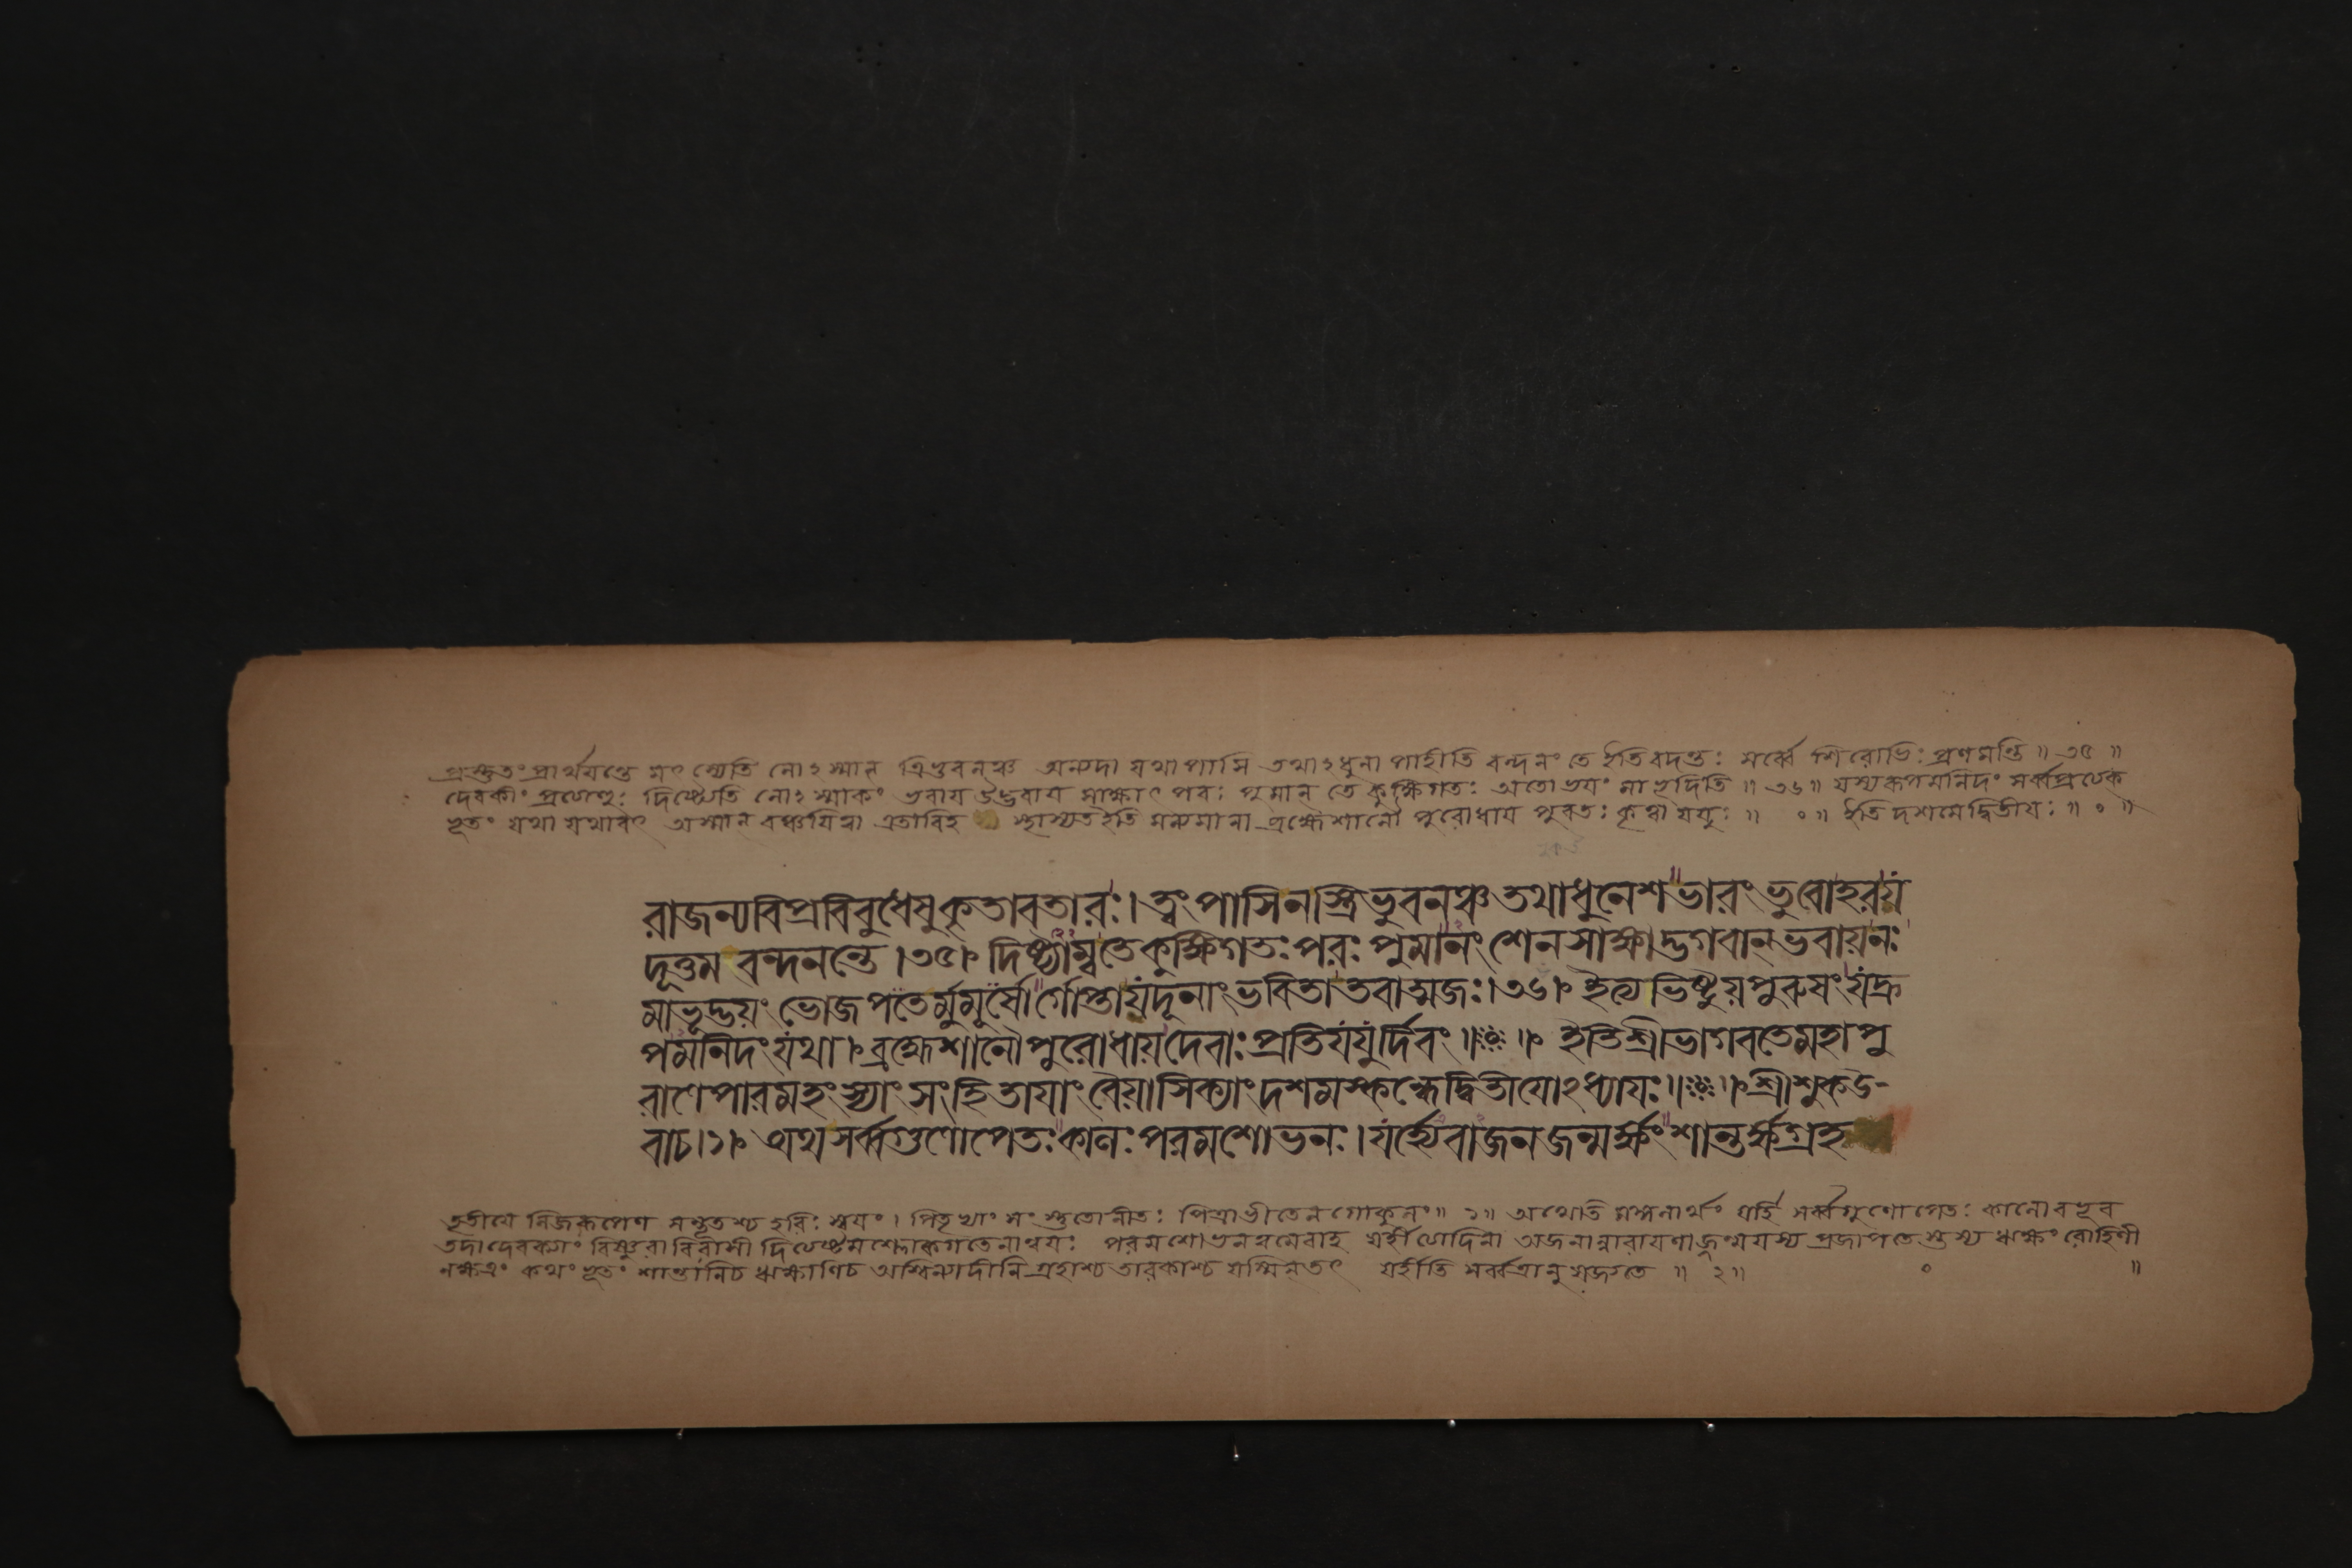 প্রস্তুতং প্রার্থয়ন্তে মৎস্যেতি নোঽস্মান ত্রিভুবনঞ্চ অন্যদা যথা পাসি তথাঽধুনা পাহীতি বন্দনং তে ইতি বদন্তঃ সর্ব্বে শিরোভিঃ প্রণমন্তি ॥ ৩৫ ॥
দেবকীং প্রত্যেণ্ডুঃ দিষ্ট্যেতি নোঽস্মাকং ভবায় উদ্ভবায় সাক্ষাৎ পরঃ পুমান্ তে কুক্ষিগতঃ অতো ভয়ং মা ভূদিতি ॥ ৩৬ ॥ যস্য রূপমনিদং সর্ব্বপ্রত্যেক
ভূতং যথা যথাবৎ অস্মান বঞ্চযিত্বা এতাবিহ স্থাস্যত ইতি মন্যমানা ব্রহ্মেশানৌ পুরোধায় পুরতঃ কৃত্বা যযুঃ ॥ ০ ॥ ইতি দশমে দ্বিতীয়ঃ ॥ ০ ॥
রাজন্যবিপ্রবিবুধেষুকৃতাবতারঃ। ত্বং পাসিনস্ত্রিভুবনঞ্চ তথাধুনেশ ভারং ভুবোহরয়
দূত্তম বন্দনন্তে ।৩৫। দিষ্ট্যাম্বতেকুক্ষিগতঃ পরঃ পুমানংশেনসাক্ষাদ্ভগবান্ ভবায়নঃ
মাভূদ্ভয়ং ভোজপতের্মুমূর্ষোর্গোপ্তায়দূনাং ভবিতা তবাত্মজঃ।৩৬। ইত্যেভিষ্টূয়পুরুষং যদ্রূ
পমনিদং যথা। ব্রহ্মেশানৌপুরোধায়দেবাঃ প্রতিযযুর্দিবং ॥ ॥ ইতিশ্রীভাগবতেমহাপু
রাণেপারমহংস্যাং সংহিতাযাং বৈয়াসিক্যাং দশমস্কন্ধেদ্বিতীযোঽধ্যাযঃ॥ ॥শ্রীশুকউ-
বাচ।১। অথসর্ব্বগুণোপেতঃকালঃ পরমশোভনঃ। যর্হ্যেবাজনজন্মর্ক্ষংশান্তর্ক্ষগ্রহ
তৃতীয়ে নিজরূপেণ সম্ভূতশ্চ হরিঃ স্বয়ং। পিতৃভ্যাং সংস্তুতো নীতঃ পিত্রা ভীতেন গোকুলং॥ ১॥ অথেতি মঙ্গলার্থং যর্হি সর্ব্বগুণোপেতঃ কালো বভূব
তদা দেবক্যাং বিষ্ণুরাবিরাসী দিত্যেষ্টমশ্লোকগতেনান্বয়ঃ পরমশোভনত্বমেবাহ যর্হীত্যাদিনা অজনান্নারায়ণাজ্জন্ম যস্য প্রজাপতেস্তস্য ঋক্ষং রোহিণী
নক্ষত্রং কথং ভূতং শান্তানি চ ঋক্ষাণি চ অশ্বিন্যাদীনি গ্রহাশ্চ তারকাশ্চ যস্মিন্ তৎ যর্হীতি সর্ব্বত্রানুষজ্জতে ॥ ২॥ ০ ॥